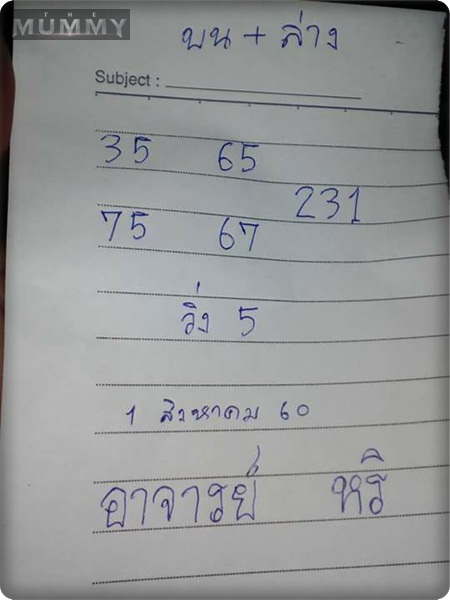 THE
MUMMY
บน + ล่าง
Subject :
35 65
231
75 67
วิ่ง 5
1 สิงหาคม 60
อาจารย์ หริ